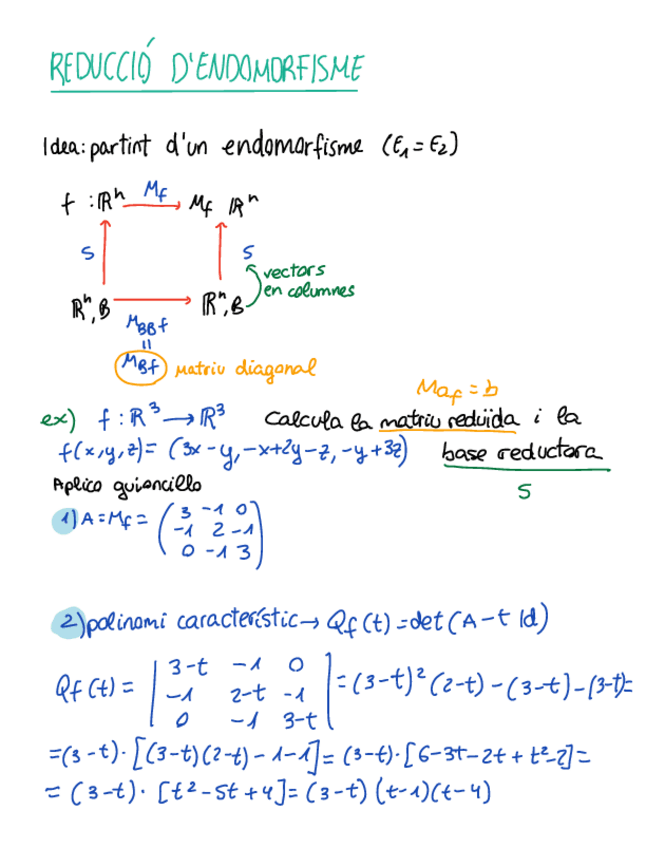 REDUCCIÓ D'ENDOMORFISME
Idea: partint d'un endomorfisme (E₁ = E₂)
f : ℝⁿ Mf Mf ℝⁿ
S S
vectors
en columnes
ℝⁿ, B ℝⁿ, B
M_BB f
=
M_B f matriu diagonal
Maf = b
ex) f : ℝ³ → ℝ³ Calcula la matriu reduïda i la
f(x,y,z) = (3x - y, -x+2y-z, -y+3z) base reductora
Aplico guioncillo S
1) A = Mf = ( 3 -1 0
-1 2 -1
0 -1 3 )
2) polinomi característic → Qf(t) = det(A - t Id)
Qf(t) = | 3-t -1 0
-1 2-t -1
0 -1 3-t | = (3-t)² (2-t) - (3-t) - (3-t) =
= (3-t) · [(3-t)(2-t) - 1 - 1] = (3-t) · [6 - 3t - 2t + t² - 2] =
= (3-t) · [t² - 5t + 4] = (3-t) (t-1)(t-4)